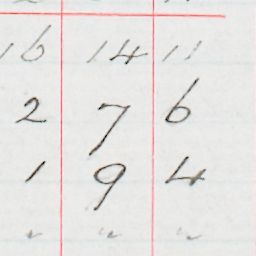 16 14 11
2 7 6
1 9 4
" " "